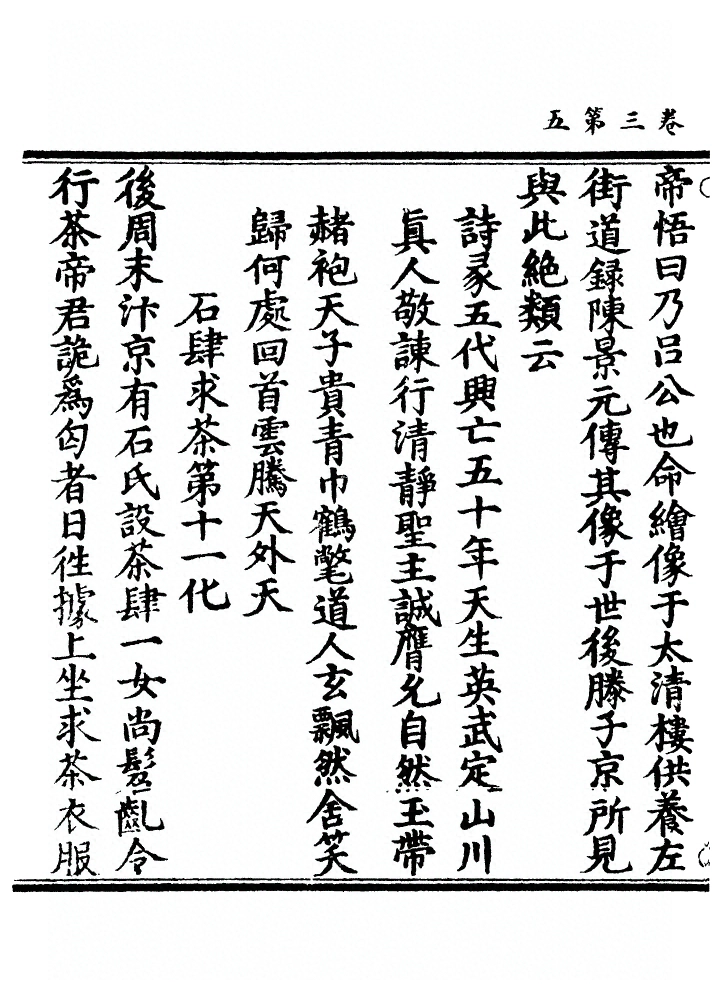 卷三第五
帝悟曰乃吕公也命繪像于太清樓供養左
街道録陳景元傳其像于世後滕子京所見
與此絶類云
詩彖五代興亡五十年天生英武定山川
眞人敬諫行清靜聖主誠膺允自然玉帶
赭袍天子貴青巾鶴氅道人玄飄然舍笑
歸何處回首雲騰天外天
石肆求茶第十一化
後周末汴京有石氏設茶肆一女尚髫齔令
行茶帝君詭爲匃者日徃據上坐求茶衣服